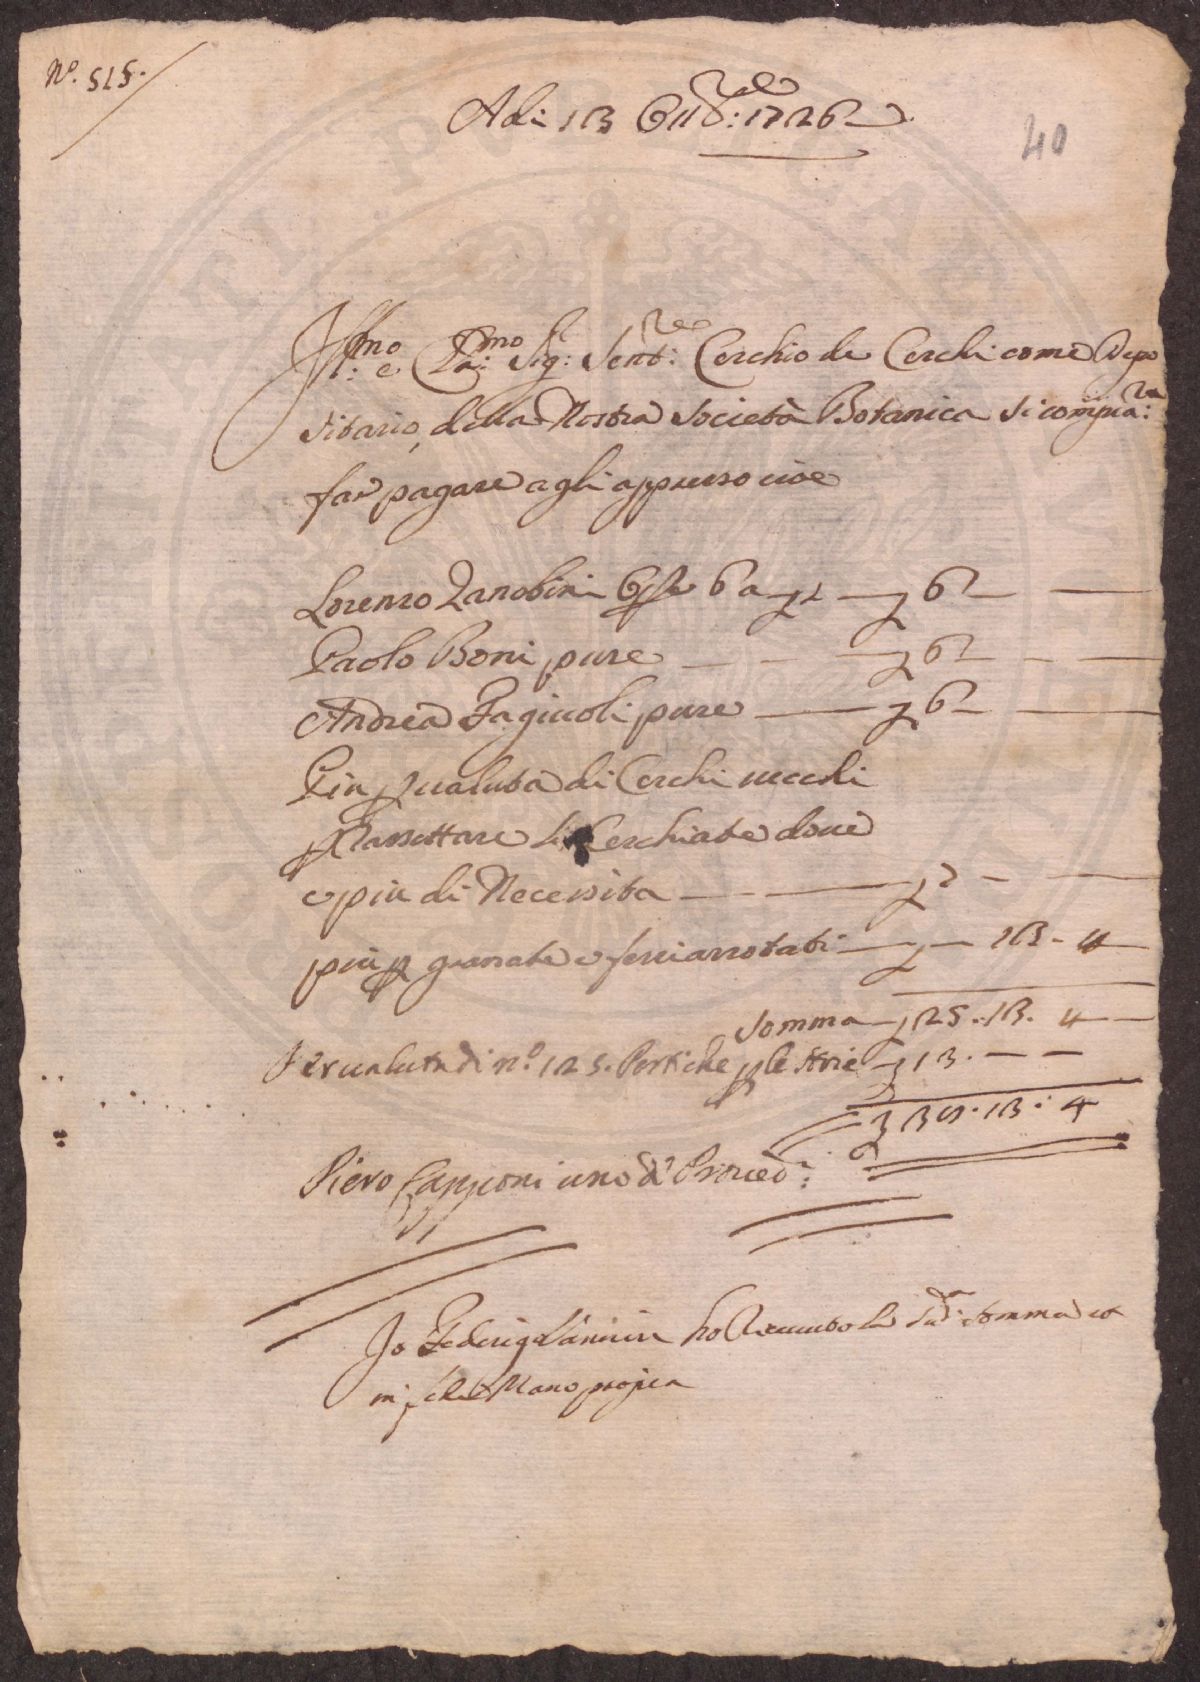 N.º 515.
Adi 13 Ott.re 1726
40
Ill.mo e Cla.mo Sig.r Sen.re Cerchio de Cerchi come Depo
sitario della Nostra Società Botanica si compia.ra
far pagare agli appresso cioe
Lorenzo Zanobini Op.re 6 a £ 1 — £ 6 —
Paolo Boni pure — £ 6 —
Andrea Fagiuoli pure — £ 6 —
Piu p valuta di Cerchi vecchi
p Rassettare le Cerchiate dove
e piu di Necessita — £ 7 —
piu p granate e ferri arrotati — £ — 13 - 4
Somma — £ 25 . 13 . 4 —
Per valuta di n.º 125. Pertiche p le Stuie £ 13 . — —
£ 38 . 13 . 4
Piero Capponi uno d' Proved.i
Io Federigo Vannini ho Riceuto la sud.a somma co
me sop.a Mano propria